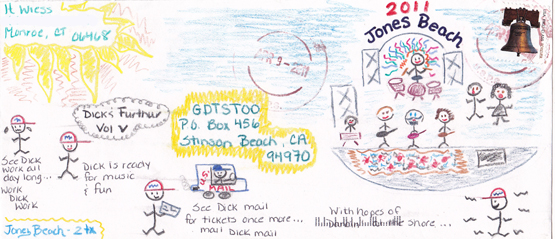 H Wiess
Monroe, CT
06468
2011
Jones Beach
APR 9 - 2011
Dick's Further
Vol V
GDTSTOO
P.O. Box 456
Stinson Beach, CA
94970
See Dick
work all
day long...
Work
Dick
Work
Dick is ready
for music
& fun
U.S.
MAIL
See Dick mail
for tickets once more...
mail Dick mail
With hopes of
snore...
Jones Beach - 2 tx